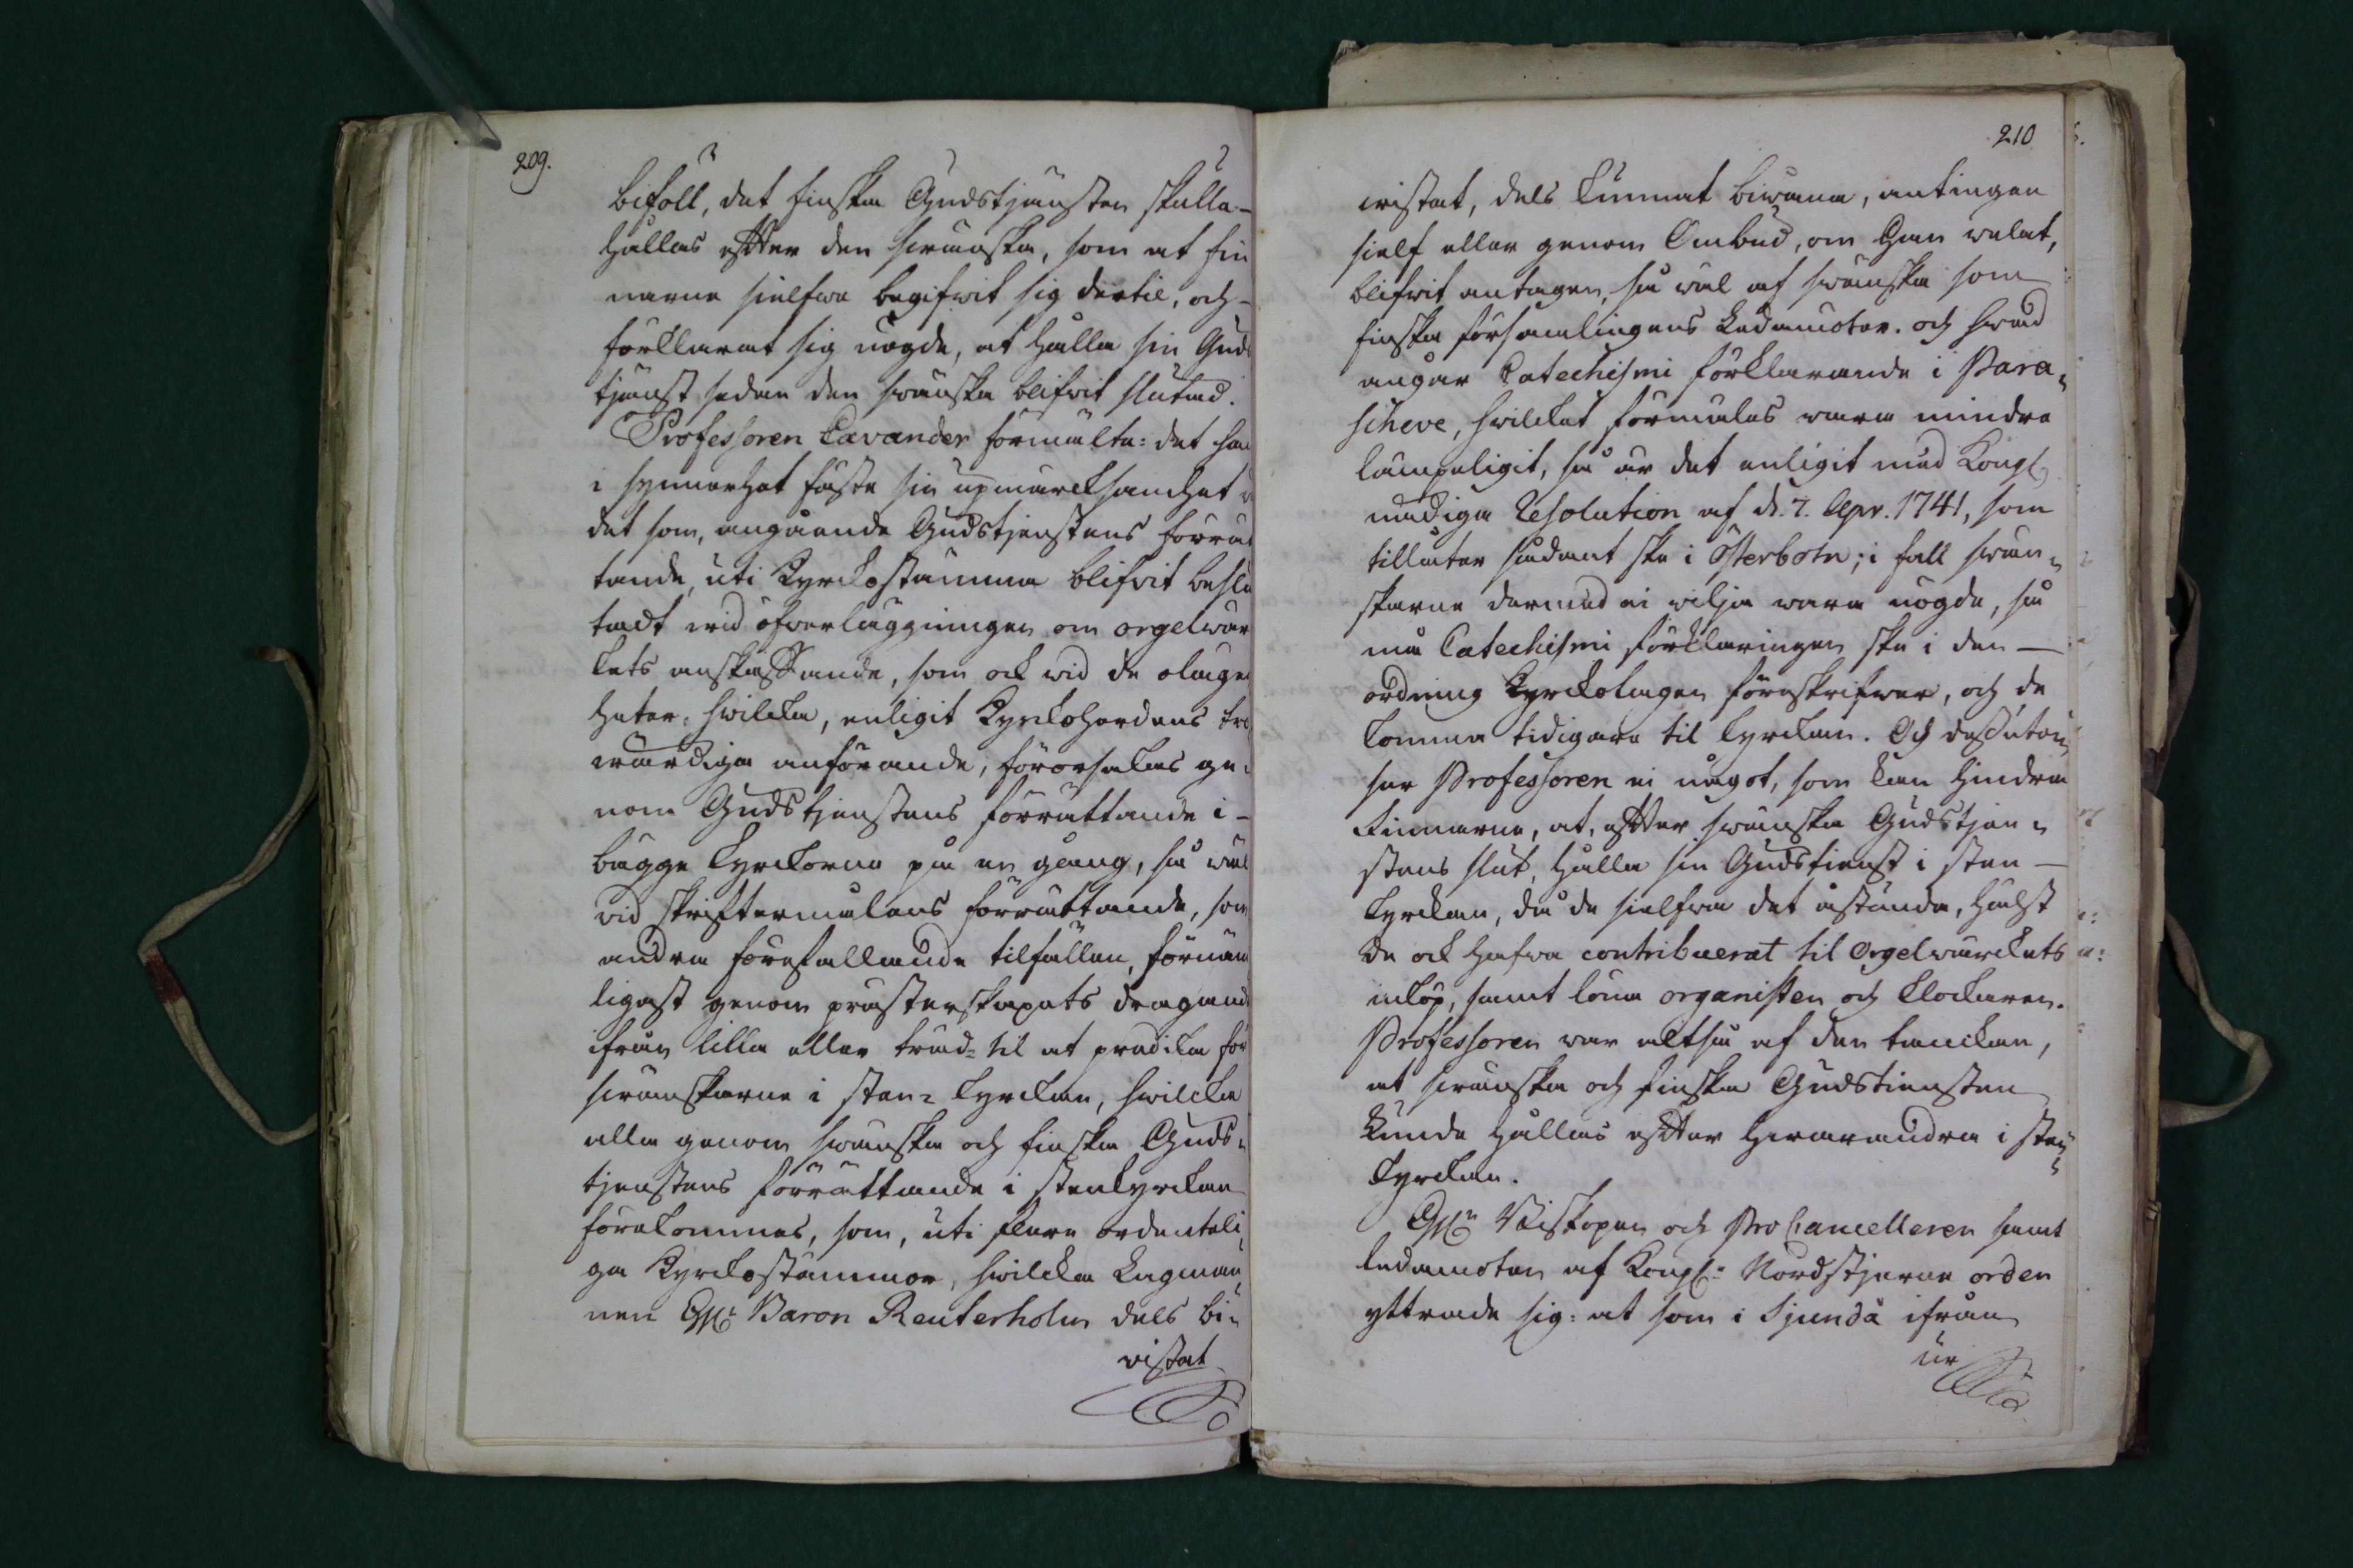 209.
bifall, det finska Gudstjänsten skulle-
hållas efter den swänska, som at fin
narne sielfwa begifwit sig dertil, och-
förklarat sig nögde, at hålla sin Guds
tjänst sedan den swänska blifwit slutad.
Professoren Lavander förmälte: det han
i synnerhet fäste sin upmärcksamhet
det som, angående Gudstjenstens förrät
tande, uti Kyrckostämma blifvit beslu
tadt wid öfverläggningen om orgelwär
kets anskaffande, som ock wid de olägen
heter, hwilcka, enligit Kyrkoherdens tro
wärdiga anförande, förorsakas ge-
nom Gudstjenstens förrättande i-
bägge kyrckorna på en gång, så wäl
vid skriftermålens förrättande, som
andra förefallande tilfällen, förnäm
ligast genom prästerskapets dragand
ifrån lilla eller träd- til at predika för
swänskarne i sten- kyrckan, hwilcka
alla genom swänska och finska Guds-
tjenstens förrättande i stenkyrckan
förekommes, som, uti flere ordenteli,
ga Kyrckostämmor, hwilcka Lagman
nen H:r Baron Reuterholm dels bi-
vistat
210
wistat, dels kunnat biwåna, antingen
sielf eller genom Ombud, om Han welat,
blifwit antagen, så wäl af swänska som
finska församlingens Ledamöter. och hwad
angår Catechismi förklarande i Para-
scheve, hwilcket förmälas wara mindre
lämpeligit, så är det enligit med Kongl.
nådiga Resolution af d. 7. Apr. 1741, som
tillåter sådant ske i Österbotn; i fall swän-
skarne dermed ei wilja wara nögde, så
må Catechismi förklaringen ske i den —
ordning Kyrckolagen föreskrifver, och de
komma tidigare til kyrckan. Och dessutom
har Professoren ei något, som kan hindra
Finnarne, at, efter swänska Gudstjen-
stens slut, hålla sin Gudstienst i sten —
kyrckan, då de sielfwa det åstunda, hälst
de ock hafwa contribuerat til Orgelwärckets
inköp, samt löna organisten och klockaren.
Professoren war altså af den tanckan,
at swänska och finska Gudstiensten
kunde hållas efter hwarandra i sten
kyrckan.
H:r Biskopen och ProCancelleren samt
ledamoten af Kongl: Nordstjerne orden
yttrade sig: at som i Sjundå ifrån
ur